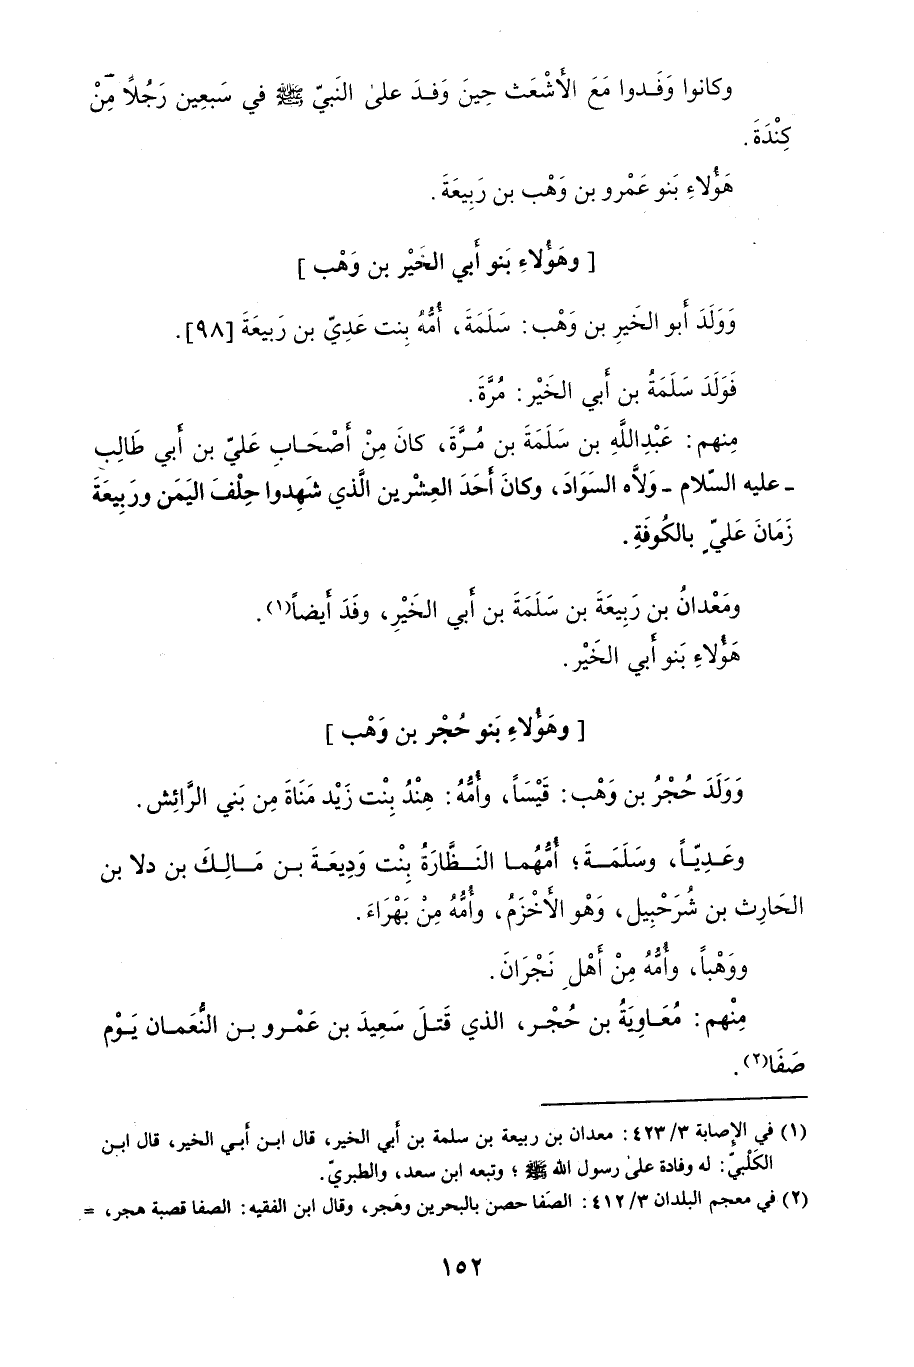 وكانوا وَفَـدوا مَعَ الأَشْعَث حِينَ وَفـدَ علىٰ النَبيّ ﷺ في سَبعِين رَجُلاً مِّنْ
كِنْدَةَ.
هَؤُلاءِ بَنو عَمْرو بن وَهْب بن رَبِيعَةَ.
[ وهَؤُلاءِ بَنو أَبي الخَيْر بن وَهْب ]
وَوَلَدَ أَبو الخَيرِ بن وَهْب: سَلَمَةَ، أُمُّهُ بِنت عَدِيّ بن رَبيعَةَ [٩٨].
فَوَلَدَ سَلَمَةُ بن أَبي الخَيْر: مُرَّةَ.
مِنهم: عَبْدِاللَّهِ بن سَلَمَةَ بن مُـرَّةَ، كانَ مِنْ أَصْحَـابِ عَليّ بن أَبي طَالِب
ـ عليه السّلام ـ وَلاَّه السَوَادَ، وكانَ أَحَدَ العِشْرين الَّذي شَهِدوا حِلْفَ اليَمَن ورَبِيعَةَ
زَمَانَ عَليّ ٍ بالكُوفَةِ.
ومَعْدانُ بن رَبِيعَةَ بن سَلَمَةَ بن أَبي الخَيْرِ، وفَدَ أَيضاً(١).
هَؤُلاءِ بَنو أَبي الخَيْر.
[ وهَؤُلاءِ بَنو حُجْر بن وَهْب ]
وَوَلَدَ حُجْرُ بن وَهْب: قَيْسَاً، وأُمُّهُ: هِنْدُ بِنْت زَيْد مَنَاةَ مِن بَني الرَّائِش.
وعَـدِيّـاً، وسَلَمَـــةَ؛ أُمُّهُمـا النَــظَّارَةُ بِنْت وَدِيعَةَ بـن مَـالِـكَ بن دلا بن
الحَارِث بن شُرَحْبِيل، وَهْو الأَخْزَمُ، وأُمُّهُ مِنْ بَهْرَاءَ.
ووَهْباً، وأُمُّهُ مِنْ أَهْلِ نَجْرَانَ.
مِنْهم: مُعَـاوِيَةُ بن حُجْـر، الذي قَتـلَ سَعِيدَ بن عَمْـرو بـن النُّعَمـان يَـوْم
صَفَا(٢).
(١) في الإِصابة ٣/ ٤٢٣: معدان بن ربيعة بن سلمة بن أَبي الخير، قال ابـن أَبـي الخير، قال ابـن
الكَلْبيّ: له وفادة علىٰ رسول الله ﷺ؛ وتبعه ابن سعد، والطبريّ.
(٢) في معجم البلدان ٣/ ٤١٢: الصَفا حصن بالبحرين وهَجر، وقال ابن الفقيه: الصفا قصبة هجر، =
١٥٢